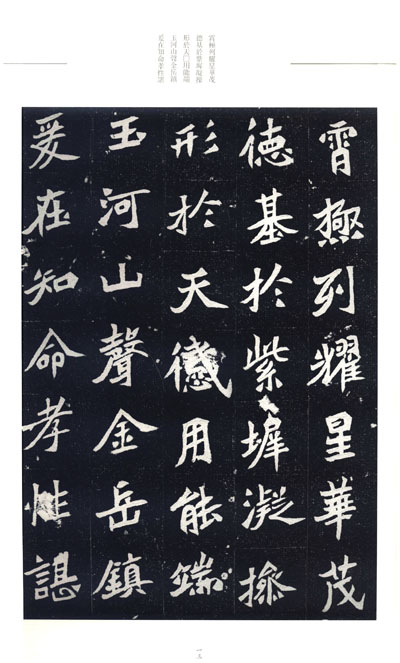 霄極列耀呈華茂
德基於紫墀凝操
形於天□用能端
玉河山聲金岳鎮
爰在知命孝性諶
霄極列耀呈華茂
德基於紫墀凝操
形於天用能端
玉河山聲金岳鎮
爰在知命孝性諶